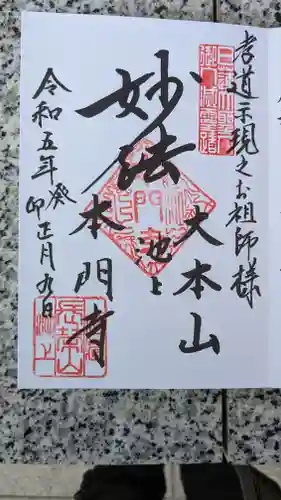 孝道示現之お祖師様
妙法
大本山
池上
本門寺
令和五年癸
卯正月九日